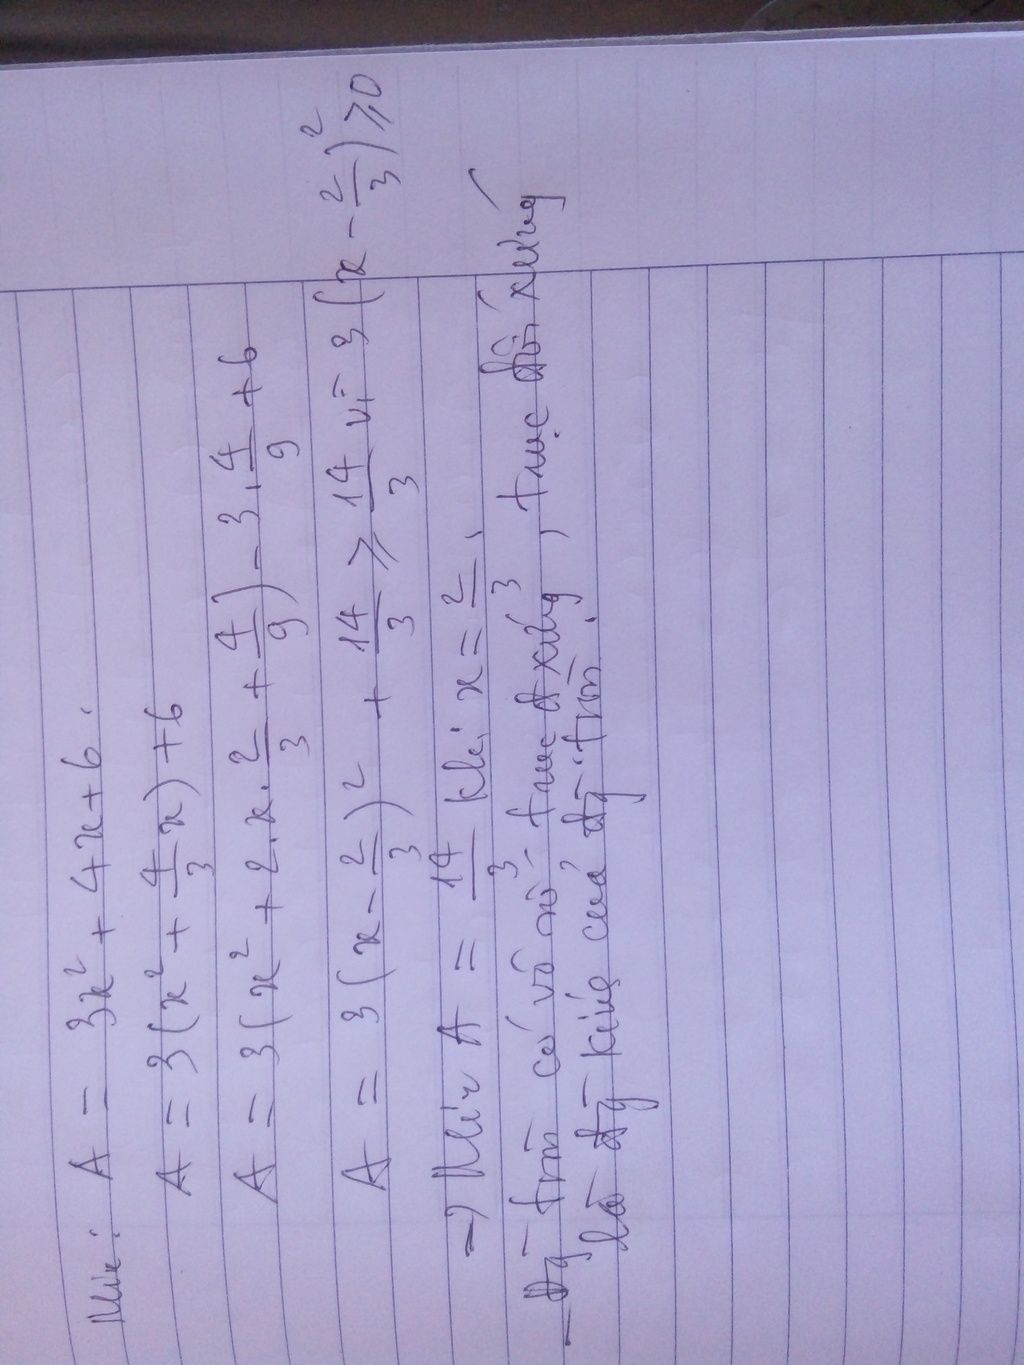 Min: A = 3x² + 4x + 6.
A = 3(x² + 4/3 x) + 6
A = 3(x² + 2.x.2/3 + 4/9) - 3.4/9 + 6
A = 3(x - 2/3)² + 14/3 ≥ 14/3 vì 3(x - 2/3)² ≥ 0
→ Min A = 14/3 khi x = 2/3.
- Đg̅ tròn có vô số trục đ xứng, trục đối xứng
là đg̅ kính của đg̅ tròn.